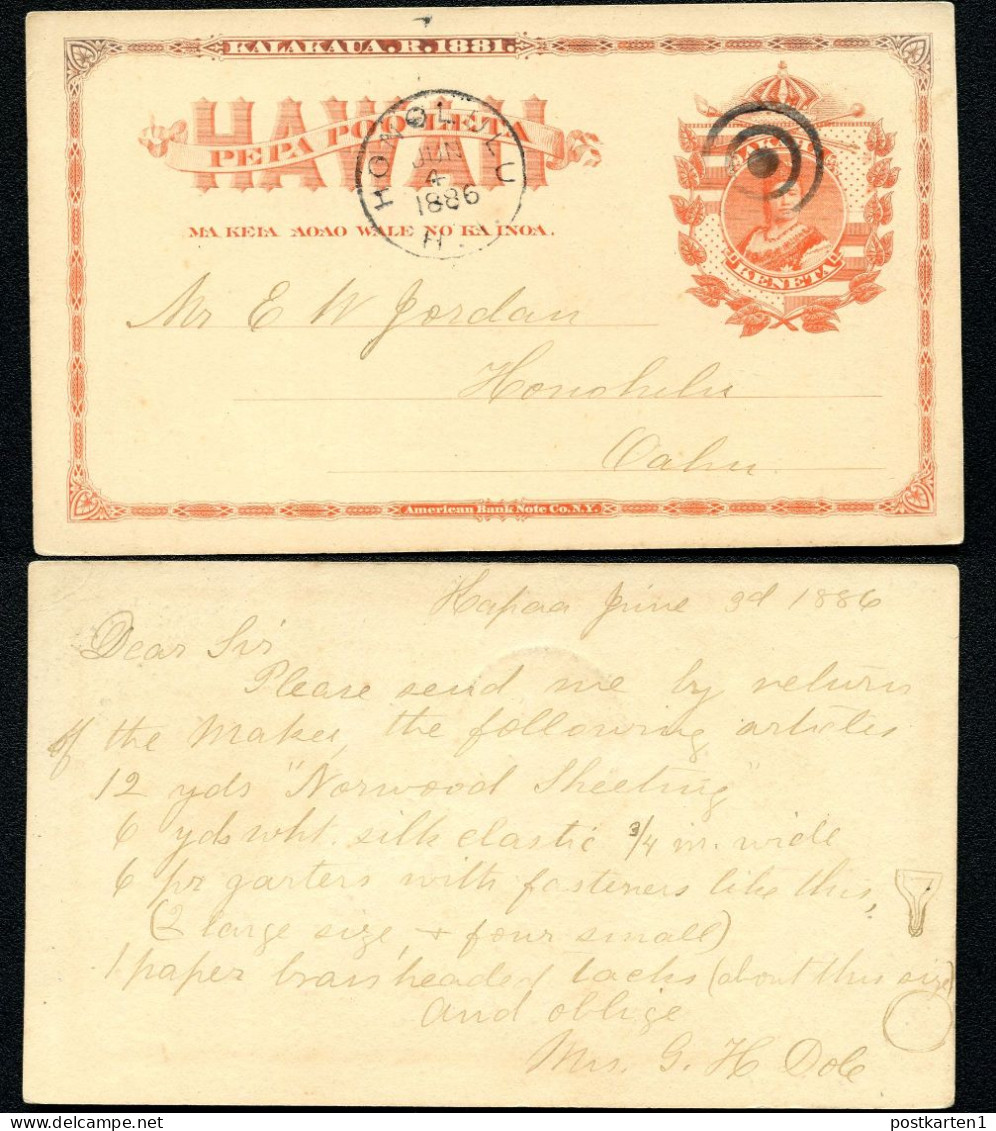 KALAKAUA.R.1881.
HAWAII
PEPA POO LETA
HONOLULU
JUN
4
1886
H
MA KEIA AOAO WALE NO KA INOA.
KENETA
Mr E W Jordan
Honolulu
Oahu
American Bank Note Co. N.Y.
Kapaa June 3d 1886
Dear Sir
Please send me by return
of the Makee, the following articles
12 yds "Norwood Sheeting"
6 yds wht. silk elastic 3/4 in. wide
6 pr garters with fasteners like this,
(2 large size, & four small)
1 paper brass headed tacks (about this size)
and oblige
Mrs. G. H Dole
postkarten1